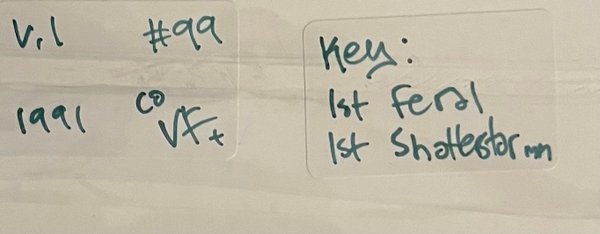 V.1 #99
1991 CO VF+
Key:
1st Feral
1st Shatterstar